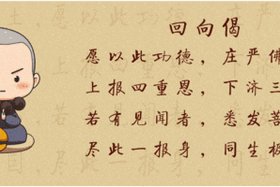 回向偈
愿以此功德，庄严佛
上报四重恩，下济三
若有见闻者，悉发菩
尽此一报身，同生极